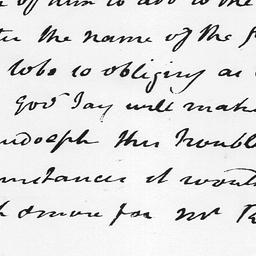 of him to add to the
the name of the f
to be so obliging as
Govr Jay will make
udolph this troubl
mstances it would
& more for Mr